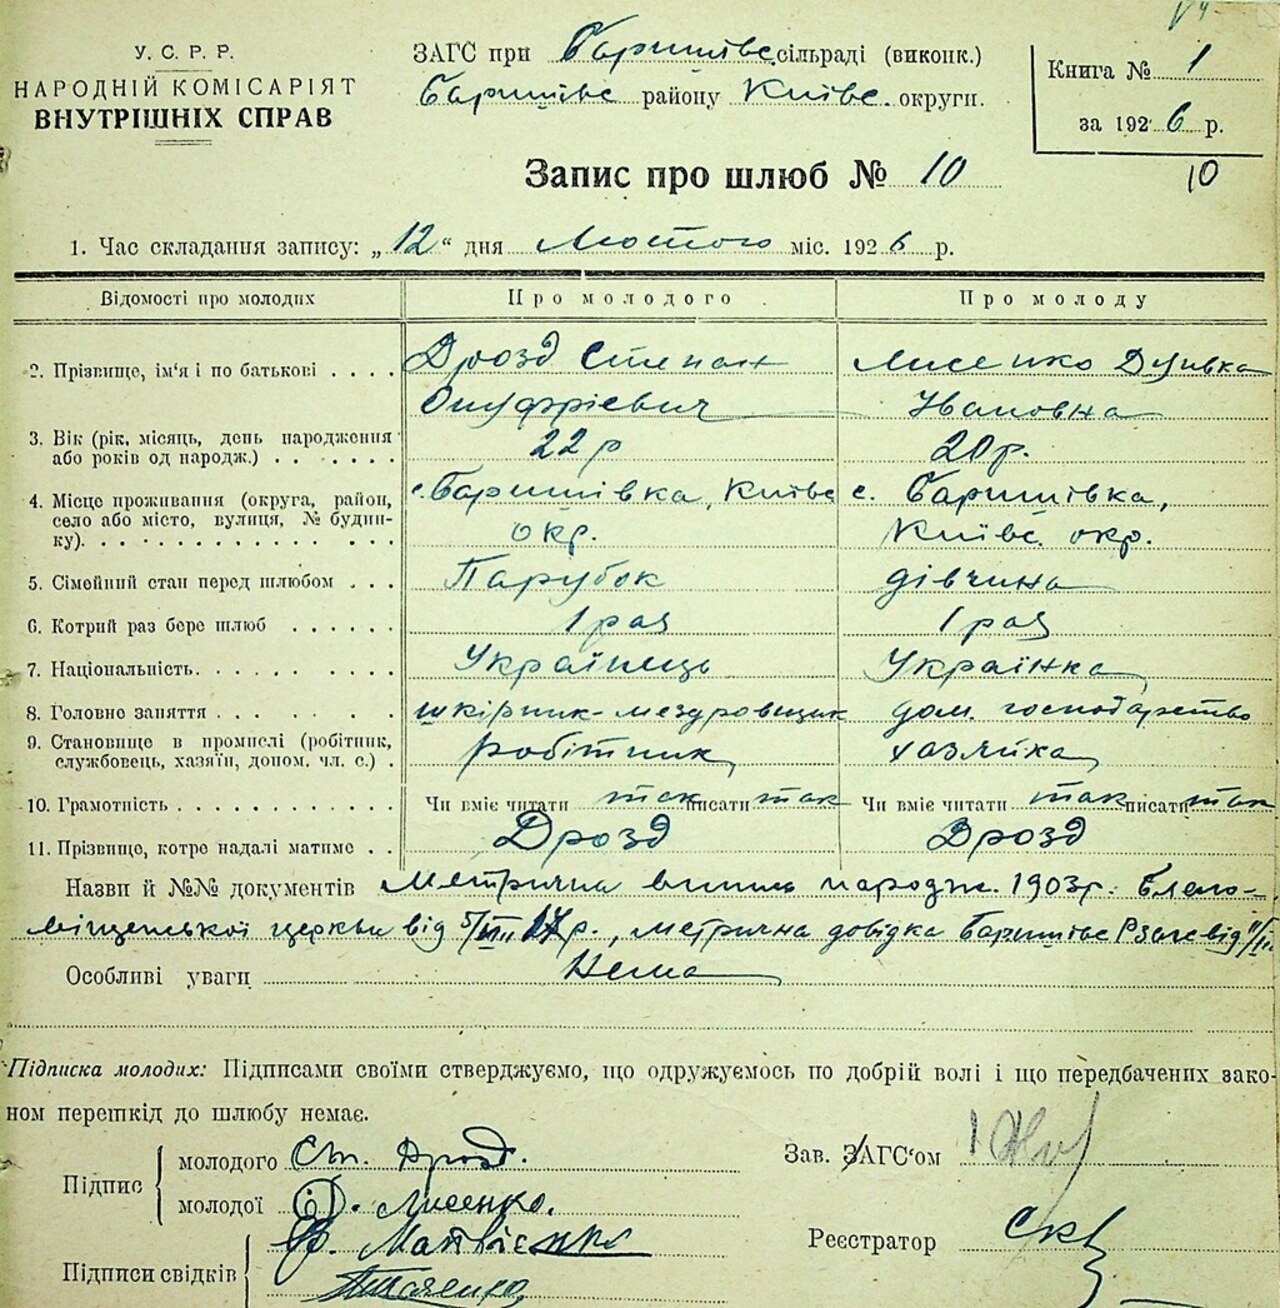 У. С. Р. Р.
НАРОДНІЙ КОМІСАРІЯТ
ВНУТРІШНІХ СПРАВ
ЗАГС при Баришівс сільраді (виконк.)
Баришівс району Київс. округи.
Книга № 1
за 1926 р.
10
Запис про шлюб № 10
1. Час складання запису: „12“ дня Лютого міс. 1926 р.
Відомості про молодих Про молодого Про молоду
2. Прізвище, ім'я і по батькові Дрозд Степан Лисенко
Онуфрієвич Івановна
3. Вік (рік, місяць, день народження 22 р 20 р.
або років од народж.)
4. Місце проживання (округа, район, с. Баришівка, Київс с. Баришівка,
село або місто, вулиця, № будин-
ку). окр. Київс. окр.
5. Сімейний стан перед шлюбом Парубок дівчина
6. Котрий раз бере шлюб 1 раз 1 раз
7. Національність Українець Українка
8. Головне заняття шкірник-мездровщик дом. господарство
9. Становище в промислі (робітник, робітник хазяйка
службовець, хазяїн, допом. чл. с.)
10. Грамотність Чи вміє читати так писати так Чи вміє читати так писати так
11. Прізвище, котре надалі матиме Дрозд Дрозд
Назви й №№ документів Метрична випись народж. 1903 р. Благо-
віщенської церкви від р., метрична довідка Баришівс від
Особливі уваги Нема
Підписка молодих: Підписами своїми стверджуємо, що одружуємось по добрій волі і що передбачених зако-
ном перешкід до шлюбу немає.
Підпис молодого Ст. Дрозд.
молодої Д. Лисенко.
Зав. ЗАГС'ом
Підписи свідків Ф. Матвієнко
Ткаченко
Реєстратор